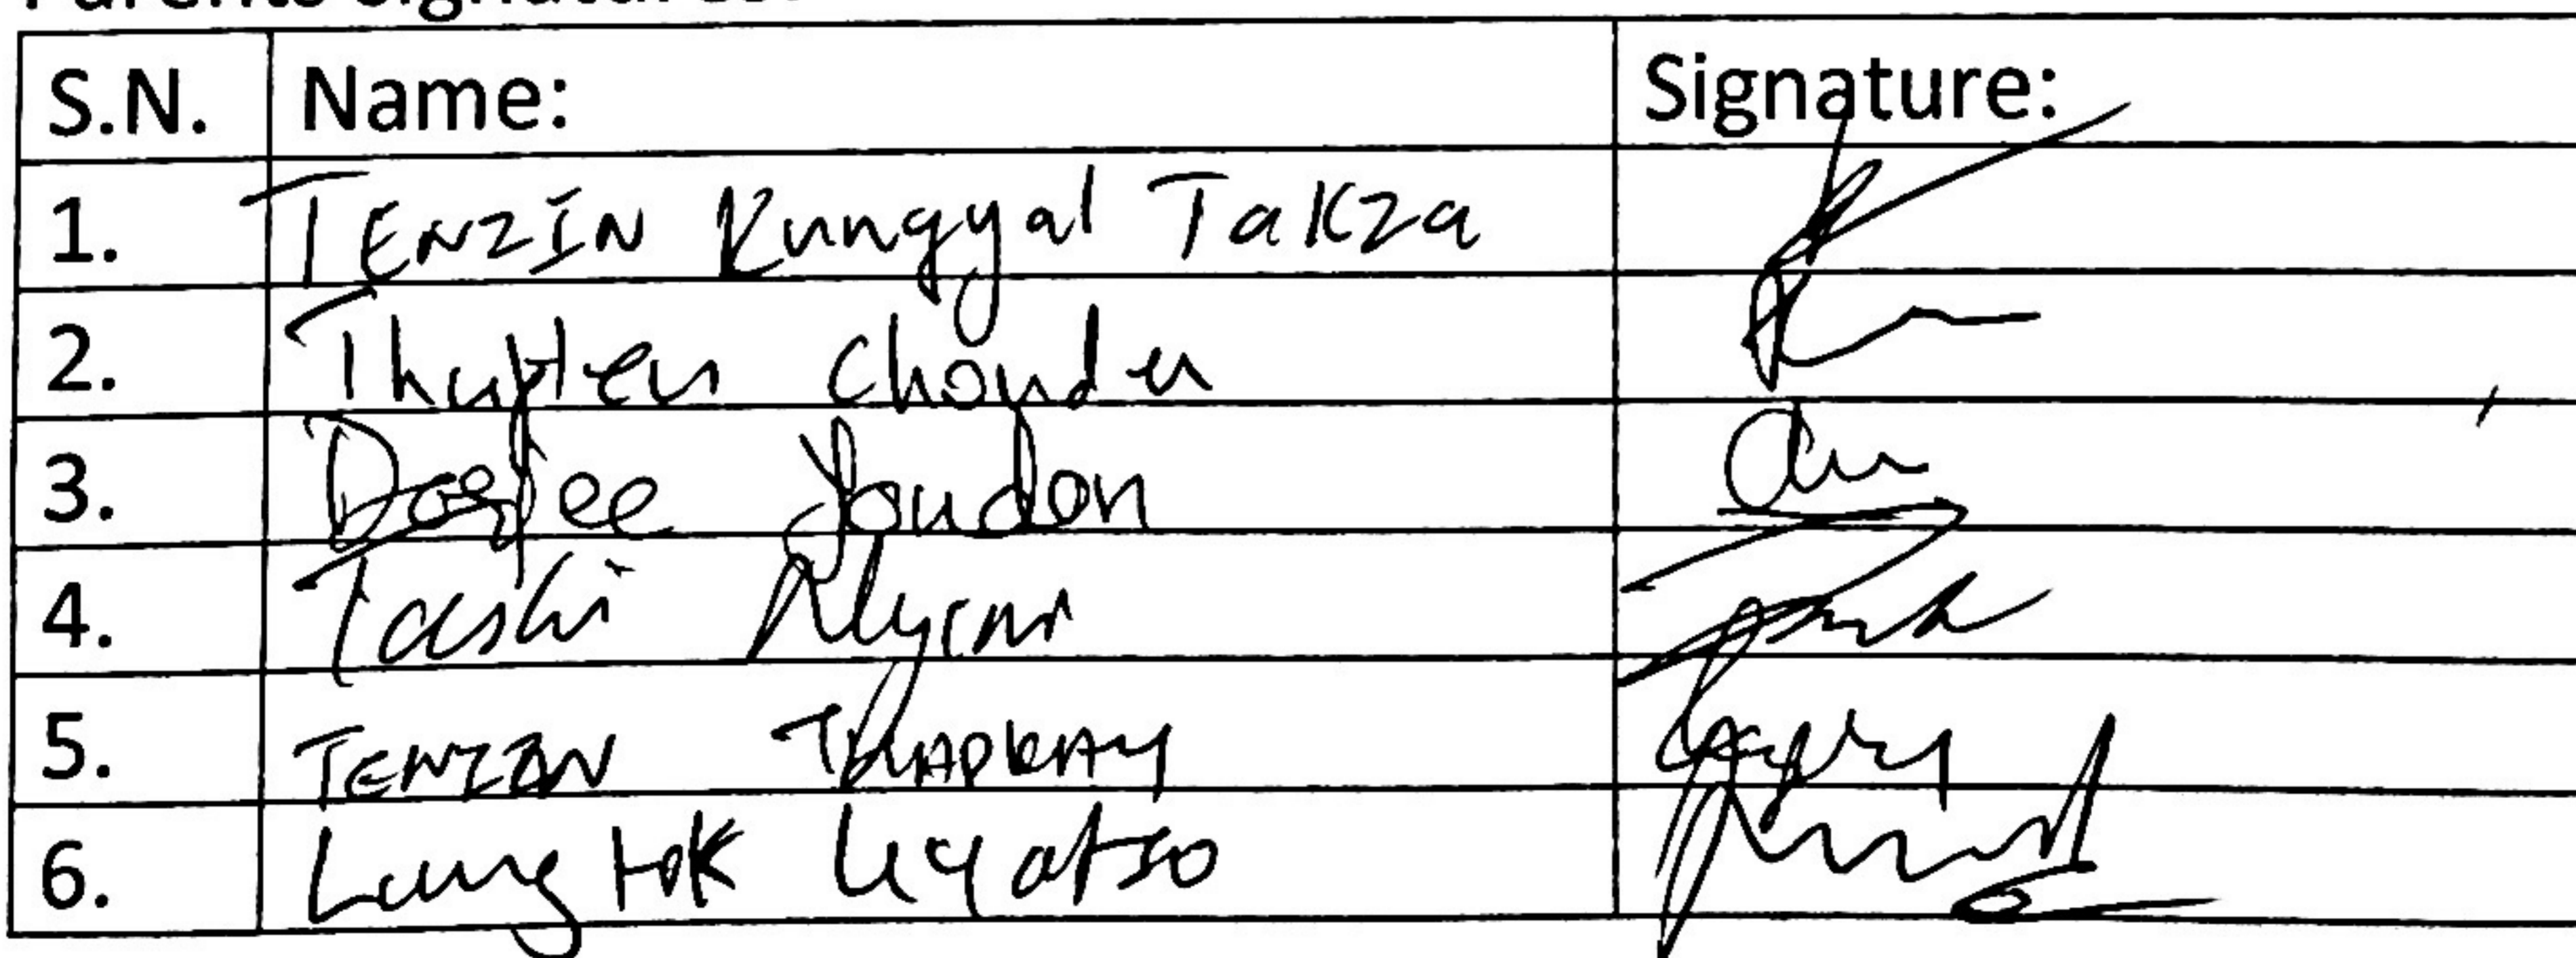 Parents signatures:
S.N. Name: Signature:
1. TENZIN Kungyal TaKza
2. Thupten Chonden
3. Dorjee Youdon
4. Tashi Nyima
5. TENZIN THAPKAY
6. Lungtok Gyatso